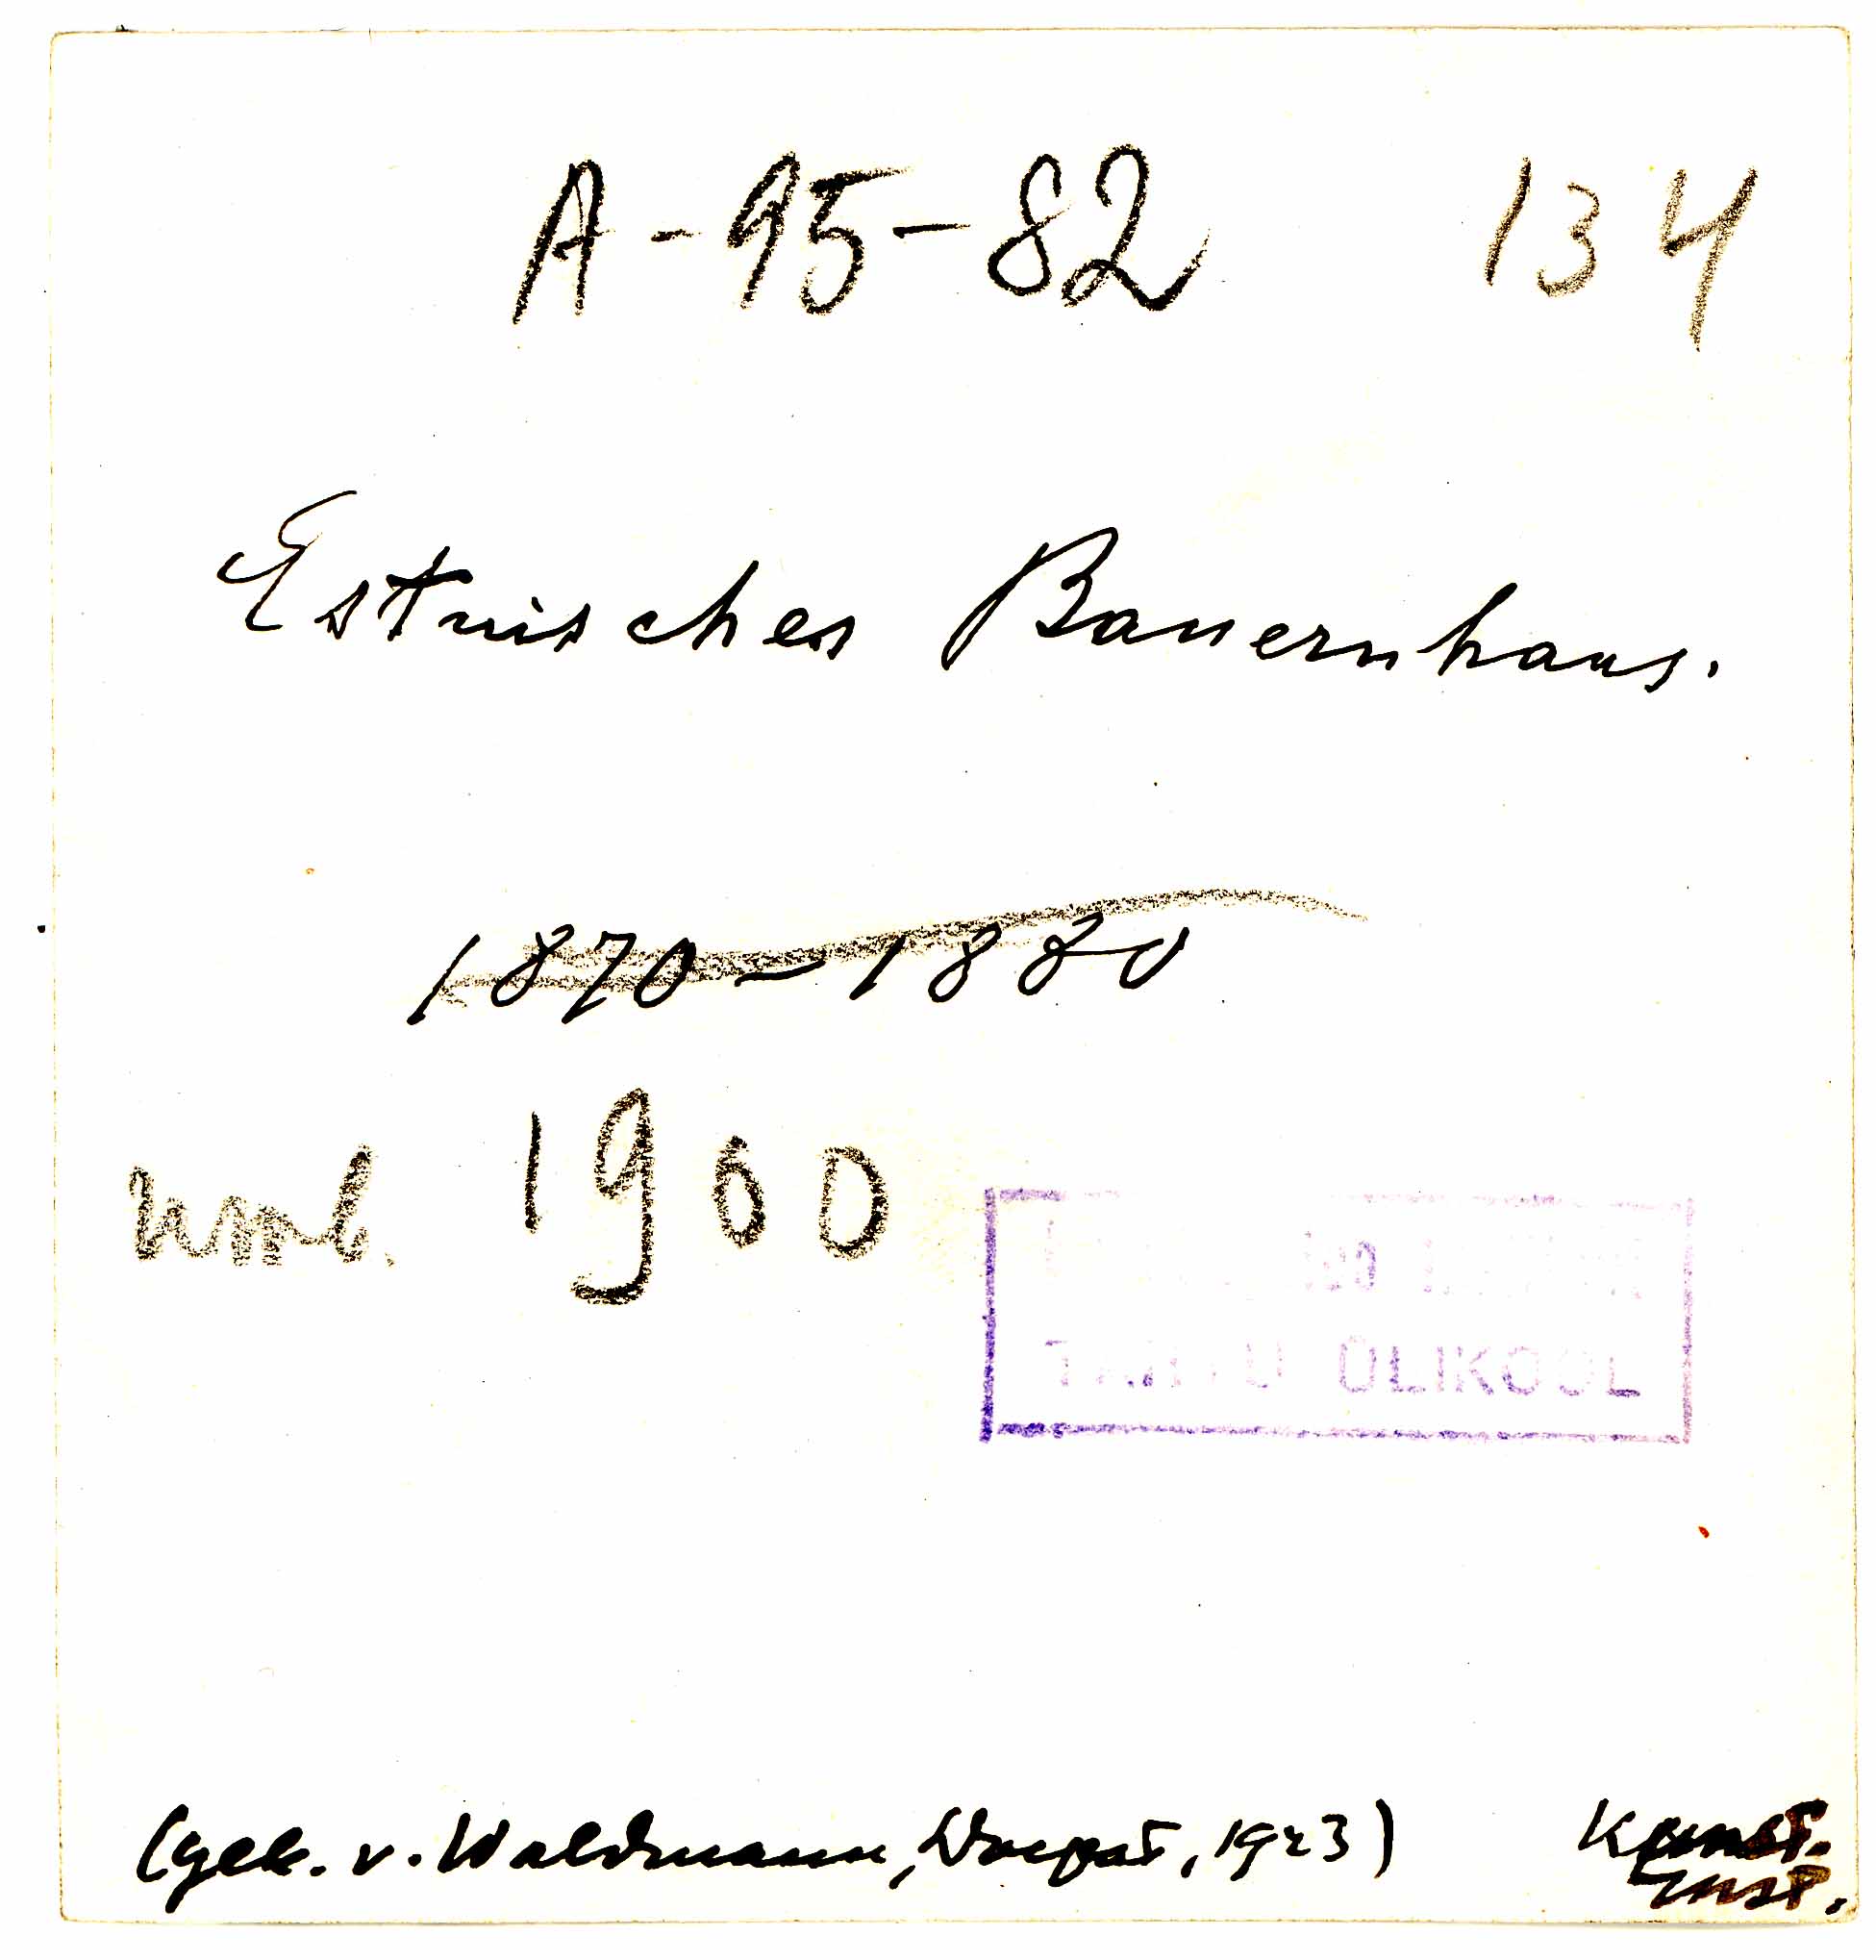 A-95-82 134
Estnisches Bauernhaus.
1870-1880
umb. 1900
TARTU ÜLIKOOL
(gek. v. Waldmann, Dorpat, 1923) Kunst.
Inst.